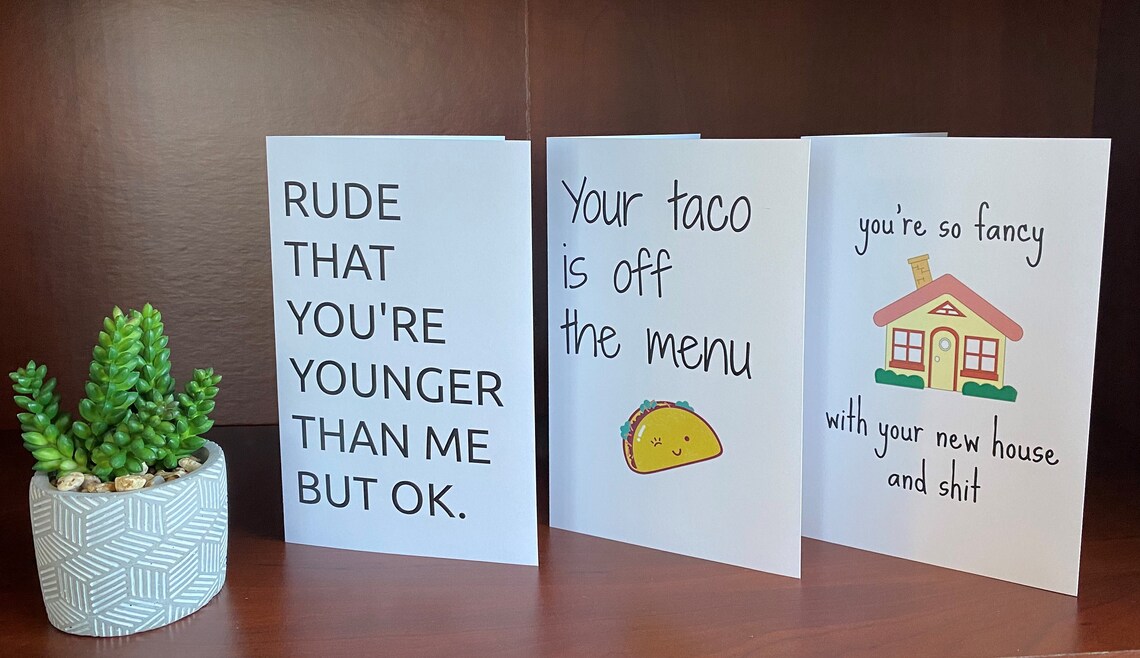 RUDE
THAT
YOU'RE
YOUNGER
THAN ME
BUT OK.
Your taco
is off
the menu
you're so fancy
with your new house
and shit